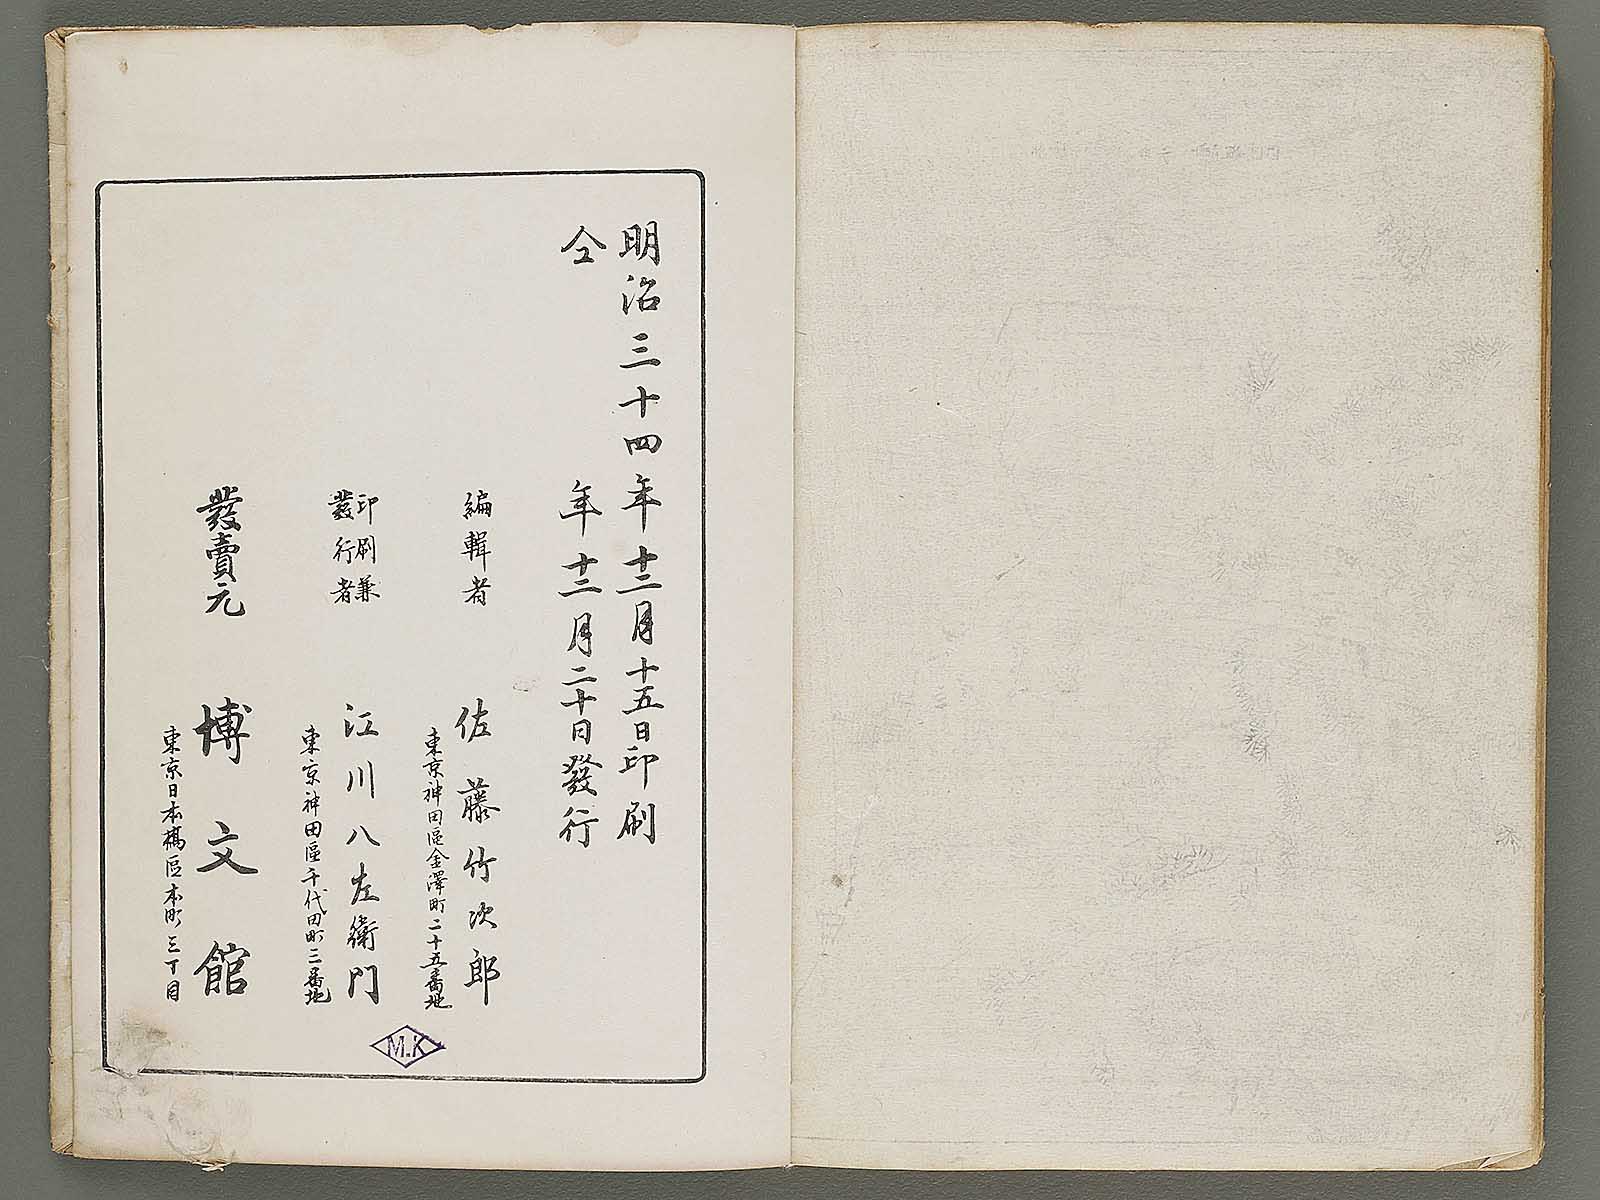 明治三十四年十二月十五日印刷
仝年十二月二十日發行
編輯者 佐藤竹次郎
東京神田區金澤町二十五番地
印刷兼
發行者
江川八左衛門
東京神田區千代田町二番地
發賣元 博文館
東京日本橋區本町三丁目
M.K